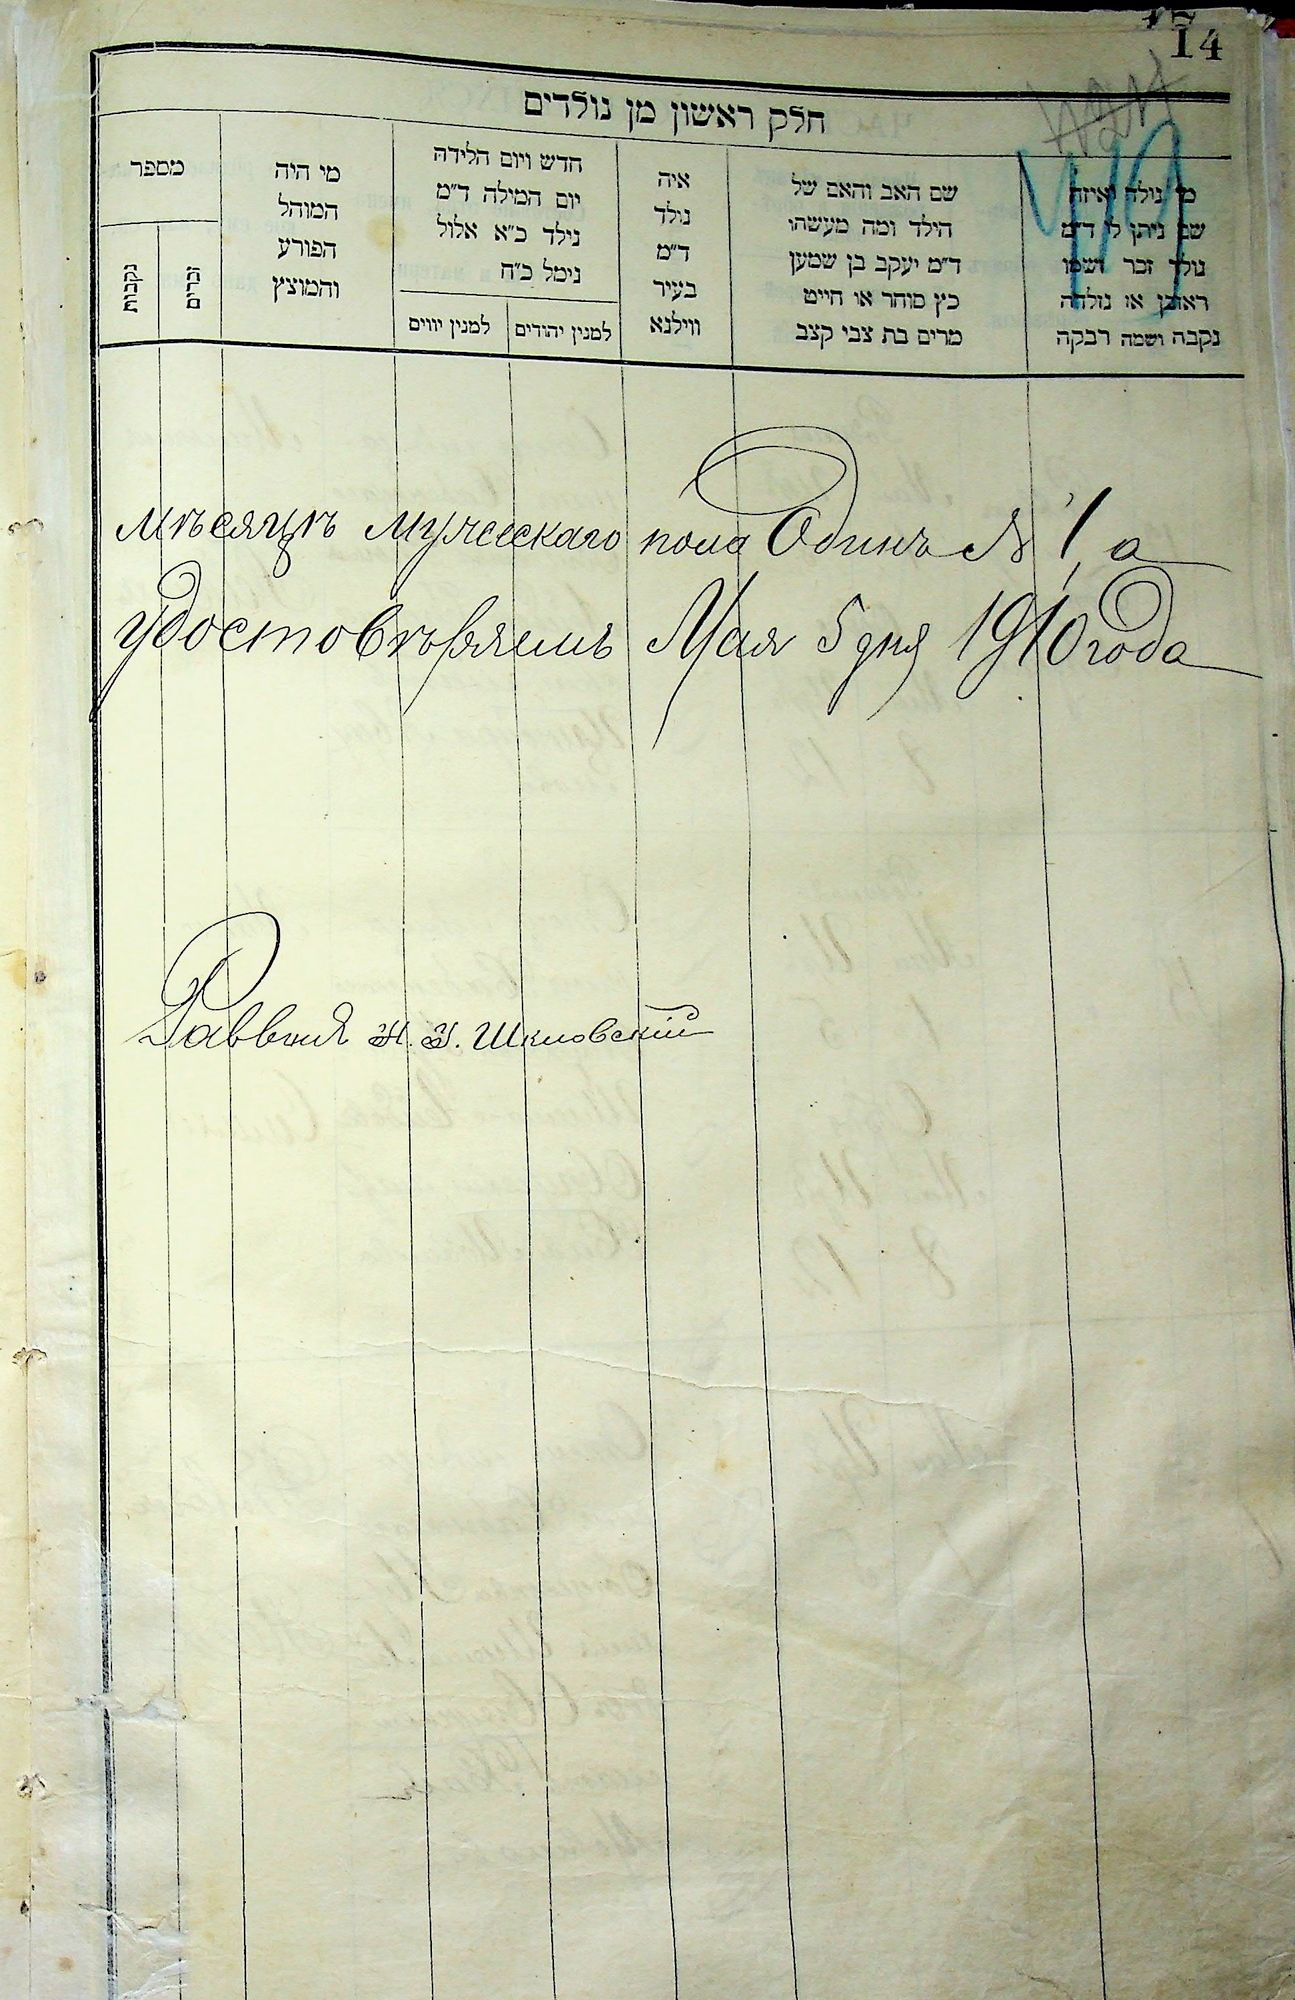 14
חלק ראשון מן נולדים
מי נולד ואיזה
שם ניתן לו ד״מ
נולד זכר ושמו
ראובן או נולדה
נקבה ושמה רבקה
שם האב והאם של
הילד ומה מעשהו
ד״מ יעקב בן שמעון
כץ סוחר או חייט
מרים בת צבי קצב
איה
נולד
ד״מ
בעיר
ווילנא
חדש ויום הלידה
יום המילה ד״מ
נילד כ״א אלול
נימל כ״ח
למנין יהודים
למנין יווים
מי היה
המוהל
הפורע
והמוצץ
מספר
זכרים
נקבות
мѣсяцѣ мужескаго пола Одинъ № 1, а
удостовѣряемъ Мая 5 дня 1910 года
Раввинъ Шкловскій